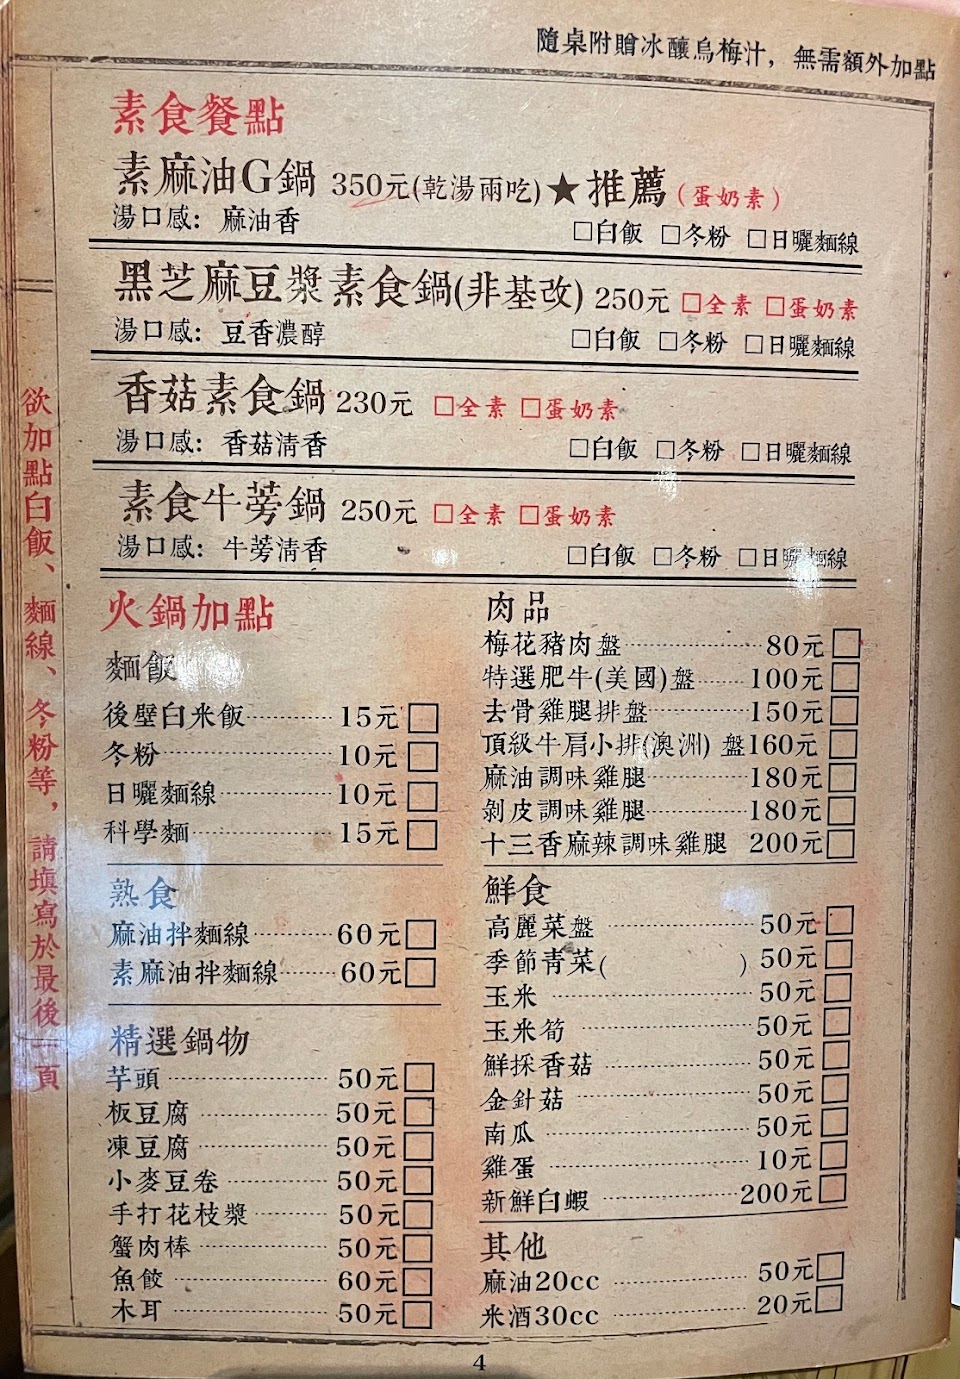 隨桌附贈冰釀烏梅汁，無需額外加點
素食餐點
素麻油G鍋 350元(乾湯兩吃)★推薦(蛋奶素)
湯口感：麻油香 □白飯 □冬粉 □日曬麵線
黑芝麻豆漿素食鍋(非基改) 250元 □全素 □蛋奶素
湯口感：豆香濃醇 □白飯 □冬粉 □日曬麵線
香菇素食鍋 230元 □全素 □蛋奶素
湯口感：香菇清香 □白飯 □冬粉 □日曬麵線
素食牛蒡鍋 250元 □全素 □蛋奶素
湯口感：牛蒡清香 □白飯 □冬粉 □日曬麵線
欲加點白飯、麵線、冬粉等，請填寫於最後一頁
火鍋加點
麵飯
後壁白米飯 15元□
冬粉 10元□
日曬麵線 10元□
科學麵 15元□
熟食
麻油拌麵線 60元□
素麻油拌麵線 60元□
精選鍋物
芋頭 50元□
板豆腐 50元□
凍豆腐 50元□
小麥豆卷 50元□
手打花枝漿 50元□
蟹肉棒 50元□
魚餃 60元□
木耳 50元□
肉品
梅花豬肉盤 80元□
特選肥牛(美國)盤 100元□
去骨雞腿排盤 150元□
頂級牛肩小排(澳洲) 盤160元□
麻油調味雞腿 180元□
剝皮調味雞腿 180元□
十三香麻辣調味雞腿 200元□
鮮食
高麗菜盤 50元□
季節青菜( ) 50元□
玉米 50元□
玉米筍 50元□
鮮採香菇 50元□
金針菇 50元□
南瓜 50元□
雞蛋 10元□
新鮮白蝦 200元□
其他
麻油20cc 50元□
米酒30cc 20元□
4